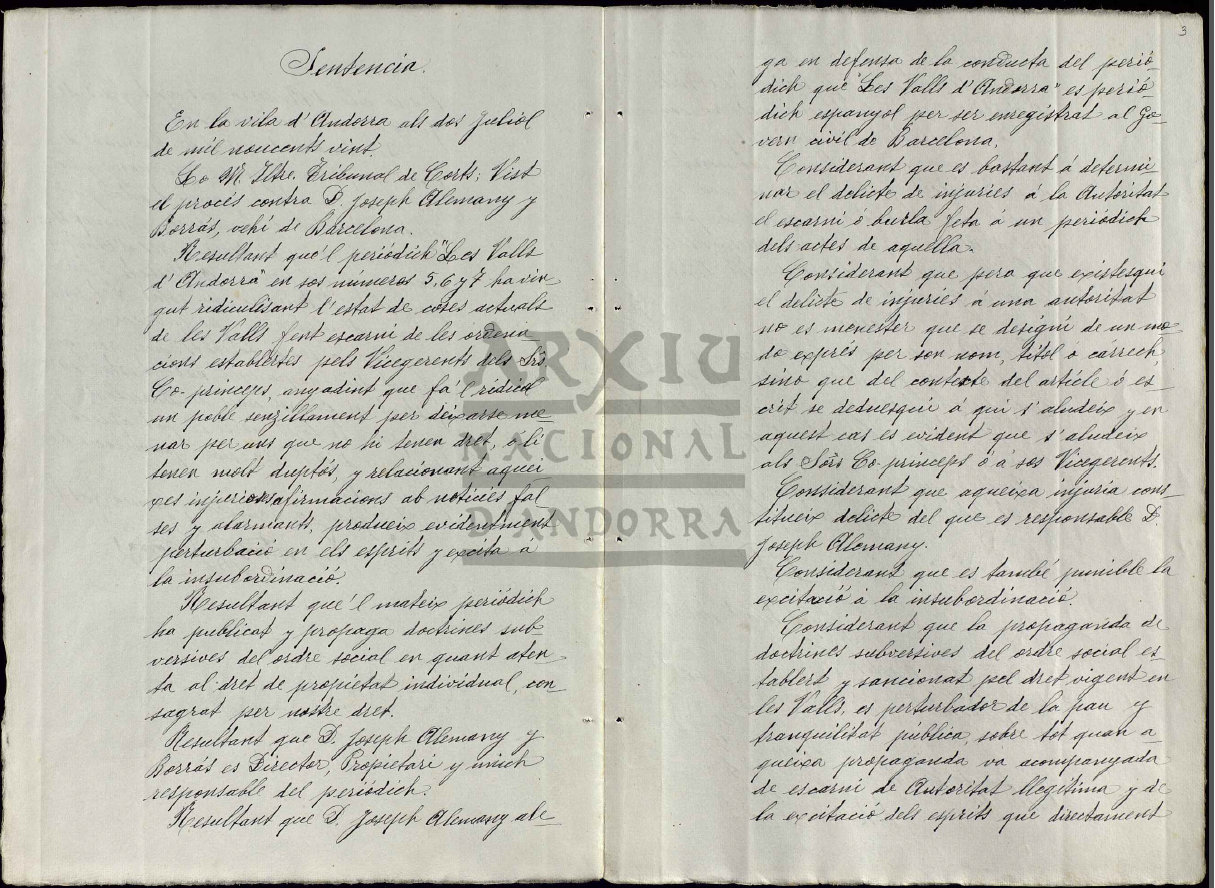 Sentencia.
En la vila d'Andorra als dos Juliol
de mil noucents vint.
Lo M. Iltre. Tribunal de Corts; Vist
el procés contra D. Joseph Alemany y
Borrás, vehí de Barcelona.
Resultant que'l periódich "Les Valls
d'Andorra" en sos números 5, 6 y 7 ha vin
gut ridiculisant l'estat de coses actuals
de les Valls fent escarni de les ordena
cions establertes pels Vicegerents dels Srs
Co-princeps, anyadint que fá'l ridicol
un poble senzillament per deixarse me
nar per uns que no hi tenen dret, ó li
tenen molt duptós, y relacionant aquei
xes injurioses afirmacions ab noticies fal
ses y alarmants, produeix evidentment
perturbació en els esprits y excita á
la insubordinació.
Resultant que'l mateix periódich
ha publicat y propaga doctrines sub-
versives del ordre social en quant aten-
ta al dret de propietat individual, con-
sagrat per nostre dret.
Resultant que D. Joseph Alemany y
Borrás es Director, Propietari y unich
responsable del periódich.
Resultant que D. Joseph Alemany ale-
3
ga en defensa de la conducta del perió-
dich que "Les Valls d'Andorra" es perió-
dich espanyol per ser enregistrat al Go-
vern civil de Barcelona.
Considerant que es bastant á determi
nar el delicte de injuries á la Autoritat
el escarni ó burla feta á un periódich
dels actes de aquella.
Considerant que pera que existesqui
el delicte de injuries á una autoritat
no es menester que se designi de un mo-
do exprés per son nom, títol ó cárrech
sino que del contexte del article ó es-
crit se deduesqui á qui s'aludeix y en
aquest cas es evident que s'aludeix
als Sors Co-princeps ó á sos Vicegerents.
Considerant que aqueixa injuria cons-
titueix delicte del que es responsable D.
Joseph Alemany.
Considerant que es també punible la
excitació á la insubordinació.
Considerant que la propaganda de
doctrines subversives del ordre social es-
tablert y sancionat pel dret vigent en
les Valls, es perturbador de la pau y
tranquilitat pública, sobre tot quan a-
queixa propaganda va acompanyada
de escarni de Autoritat llegítima y de
la excitació dels esprits que directament
ARXIU
NACIONAL
D'ANDORRA